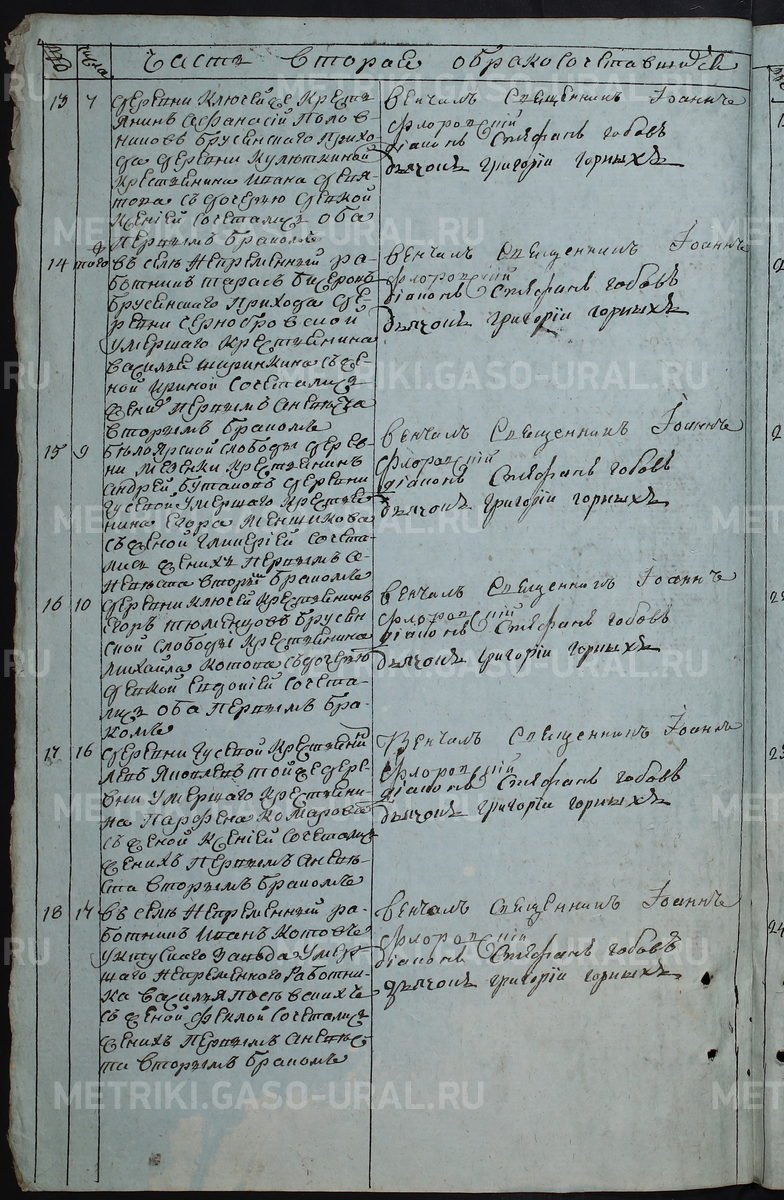 Часть вторая о бракосочетавшихся
числа
13 7 деревни Ключей крестья
янинъ Афанасій Полов
никовъ Брусянского прихо
да деревни Кулюткиной
крестьянина Ивана
съ дочерью девкой
Ксеніей сочетались оба
первымъ бракомъ
венчалъ священникъ Іоаннъ
Флоровскій
діаконъ Стефанъ Гобовъ
дьячокъ Григорій Горныхъ
14 того въ селе непременный ра
ботникъ Тарасъ
Брусянского прихода де
ревни Чернобровской
умершаго крестьянина
Василья Ширинкина съ же
ной Ириной сочетались
жених первымъ а невеста
вторымъ бракомъ
венчалъ священникъ Іоаннъ
Флоровскій
діаконъ Стефанъ Гобовъ
дьячокъ Григорій Горныхъ
15 9 Белоярской слободы дерев
ни Мезенки крестьянинъ
Андрей Бутаковъ деревни
Гусевой умершаго крестья
нина Егора Меншикова
съ женой Гликеріей сочета
лись женихъ первымъ а
невеста вторымъ бракомъ
венчалъ священникъ Іоаннъ
Флоровскій
діаконъ Стефанъ Гобовъ
дьячокъ Григорій Горныхъ
16 10 деревни Ключей крестьянинъ
Егоръ Тюменцовъ Брусян
ской слободы крестьянина
Михайла Котова съ дочерью
девкой Евдокіей сочета
лись оба первымъ бра
комъ
венчалъ священникъ Іоаннъ
Флоровскій
діаконъ Стефанъ Гобовъ
дьячокъ Григорій Горныхъ
17 16 деревни Гусевой крестьянинъ
Левъ Яковлевъ той же дере
вни умершаго крестьяни
на Парфена Комарова
съ женой Ксеніей сочетались
женихъ первымъ а неве
ста вторымъ бракомъ
Венчалъ священникъ Іоаннъ
Флоровскій
діаконъ Стефанъ Гобовъ
дьячокъ Григорій Горныхъ
18 17 въ селе непременный ра
ботникъ Иванъ Котовъ
Уктусского завода умер
шаго непременного работни
ка Василья
съ женой Феклой сочетались
женихъ первымъ а неве
ста вторымъ бракомъ
венчалъ священникъ Іоаннъ
Флоровскій
діаконъ Стефанъ Гобовъ
дьячокъ Григорій Горныхъ
METRIKI.GASO-URAL.RU